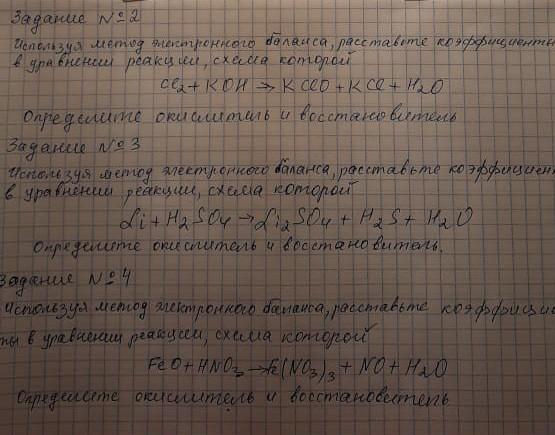 Задание №2
Используя метод электронного баланса, расставьте коэффициенты
в уравнении реакции, схема которой
Cl₂ + KOH → KClO + KCl + H₂O
Определите окислитель и восстановитель
Задание №3
Используя метод электронного баланса, расставьте коэффициен
в уравнении реакции, схема которой
Li + H₂SO₄ → Li₂SO₄ + H₂S + H₂O
Определите окислитель и восстановитель.
Задание №4
Используя метод электронного баланса, расставьте коэффици
ты в уравнении реакции, схема которой
FeO + HNO₃ → Fe(NO₃)₃ + NO + H₂O
Определите окислитель и восстановитель